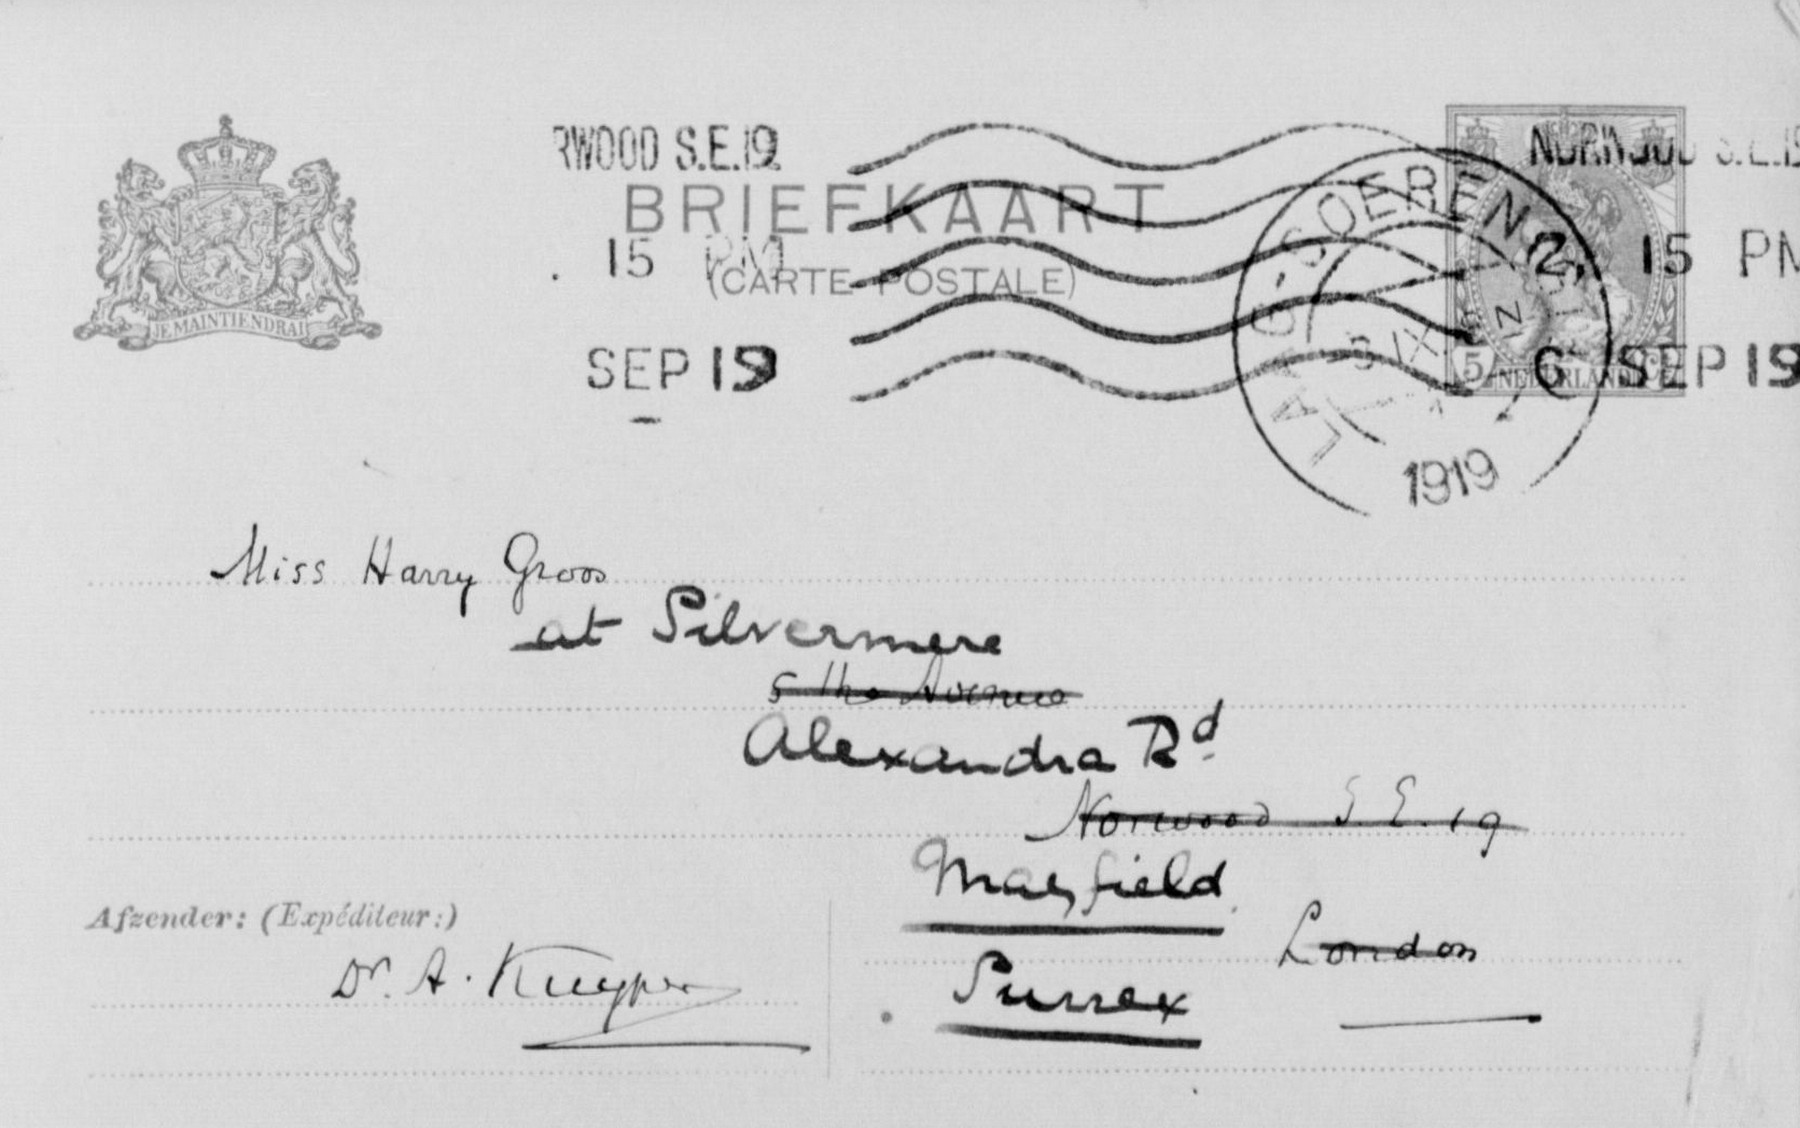 RWOOD S.E.19 NORWOOD S.E.19
BRIEFKAART
. 15 PM 2. 15 PM
(CARTE POSTALE)
JE MAINTIENDRAI
SEP 19 6 SEP 19
LAAG-SOEREN
IX
5 NEDERLAND
1919
Miss Harry Groos
at Silvermere
5 the Avenue
Alexandra Rd
Norwood S.E. 19
Mayfield
Afzender: (Expéditeur:)
London
Dr. A. Kuyper
Sussex